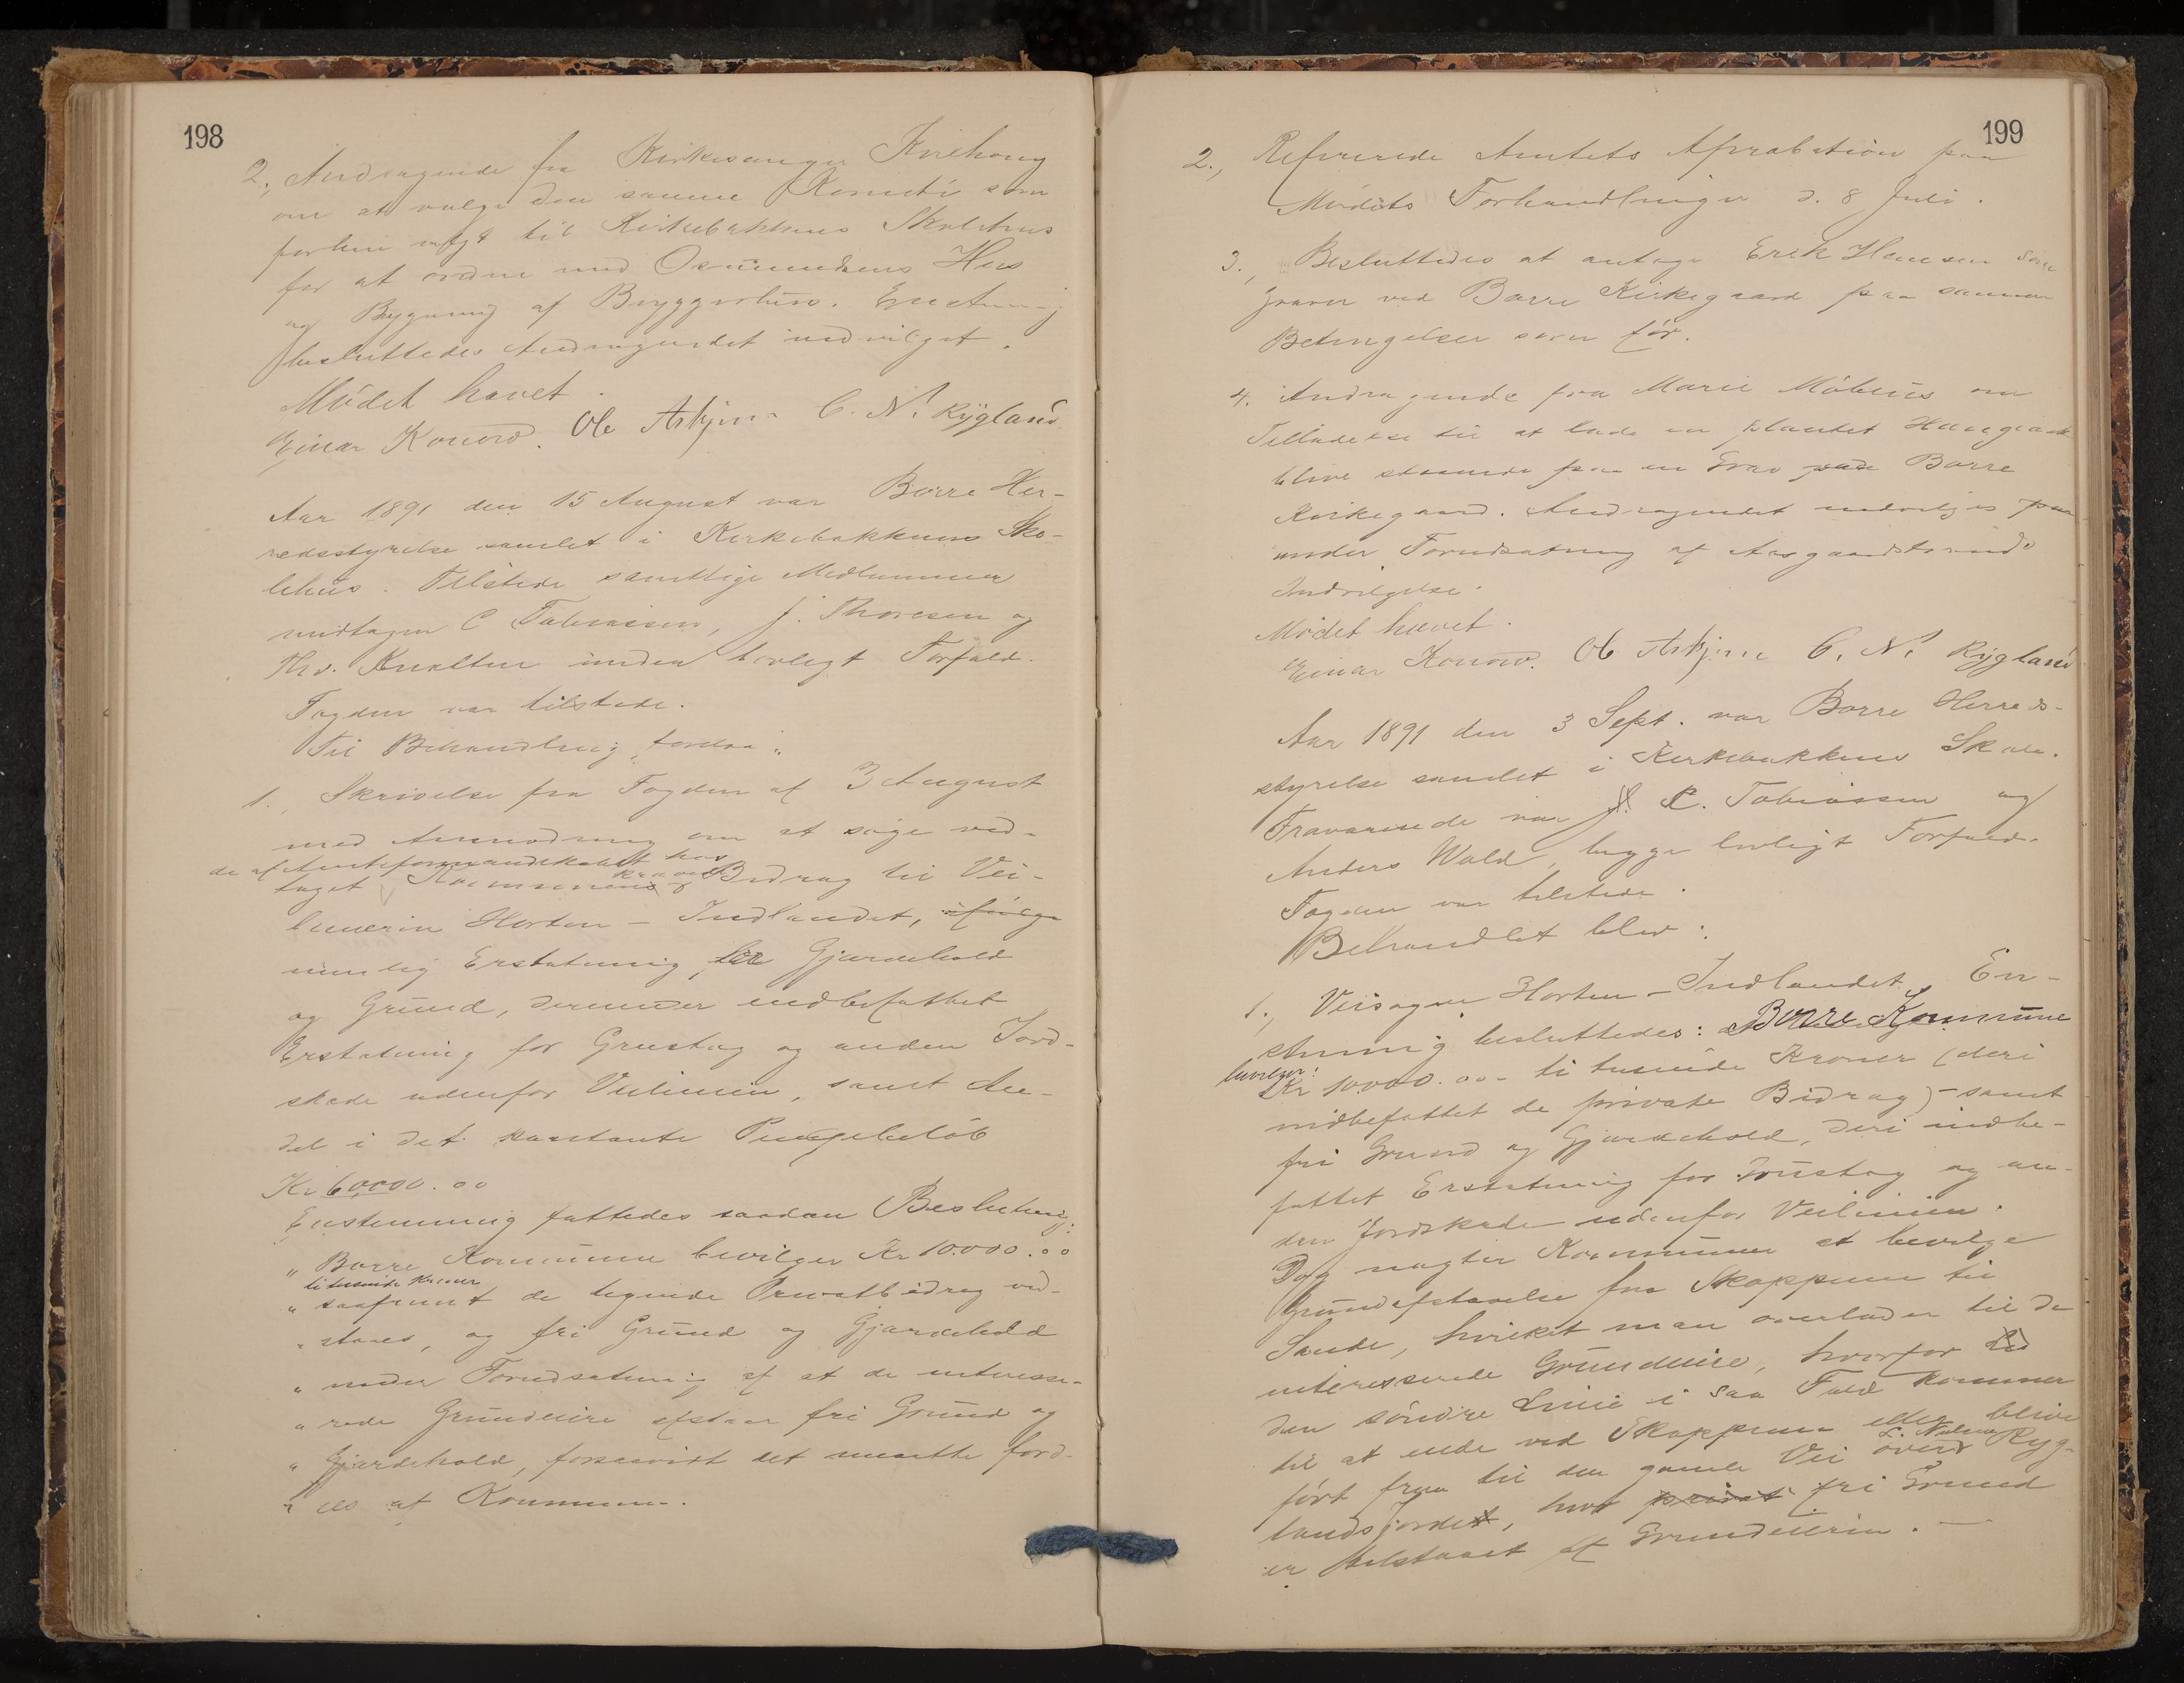 198
2., Andragende fra Kirkesanger Kirehony
om at vælge den samme Komité som
forhen valgt til Kirkebakkens Skolehus
for at ordne med Osmundsens Hus
og Bygning af Bryggerhus. Enstemmig
besluttedes Andragendet indvilget.
Mödet hævet.
Einar Konow. Ole Asbjörn C. N. Rygland
Aar 1891 den 15 August var Borre Her-
redsstyrelse samlet i Kirkebakkens Sko-
lehus. Tilstede samtlige Medlemmer
undtagen C Tobiassen, J. Thoresen og
Chr. Analten uden lovligt Forfald.
Fogden var tilstede.
Til Behandling foretoges:
1., Skrivelse fra Fogden af 3 August
med Anmodning om at söge ved-
de af Amtsformandskabet hos
taget Kommunen krævede Bidrag til Vei-
linierin Horten - Indlandet, ifölge
nemlig Erstatning for Gjerdehold
og Grund, derunder indbefattet
Erstatning for Grustag og anden Jord-
skade udenfor Veilinien, samt An-
del i det kontante Pengebelöb
Kr 6000.00
Enstemmig fattedes saadan Beslutning:
" Borre Kommune bevilger Kr 10.000.00
titusinde Kroner
" saafremt de tegnede Privatbidrag ved-
" staaes, og fri Grund og Gjerdehold
" under Forudsætning af at de interesse-
" rede Grundeiere afstaar fri Grund og
" Gjerdehold, forsaavidt det maatte ford-
" res af Kommunen.
199
2., Refererede Amtets Aprobation paa
Mödets Forhandlinger d. 8 Juli.
3., Besluttedes at antage Erik Hansen som
Graver ved Borre Kirkegaard paa samme
Betingelser som för.
4. Andragende fra Marie Möbius om
Tilladelse til at lade en plantet
blive staaende paa en Grav paa Borre
Kirkegaard. Andragendet indvilges paa
under Forudsætning af Aasgaardstrands
Indvilgelse.
Mödet hævet.
Einar Konow. Ole Asbjörn C. N. Rygland
Aar 1891 den 3 Sept. var Borre Herreds-
styrelse samlet i Kirkebakkens Skole.
Fraværende var C. Tobiassen og
Anders Wold, begge lovligt Forfald.
Fogden var tilstede.
Behandlet blev:
1., Veisagen Horten - Indlandet. En-
stemmig besluttedes: Borre Kommune
bevilger:
Kr 10.000.00 - ti tusinde Kroner (deri
indbefattet de private Bidrag) - samt
fri Grund og Gjerdehold, deri indbe-
fattet Erstatning for Grustag og an-
den Jordskade udenfor Veilinien.
Dog nægter Kommunen at bevilge
Grundafstaaelse fra Skoppum til
Sande, hvilket man overlader til de
interesserede Grundeiere, hvorfor
den söndre Linie i saa Fald kommer
til at ende ved Skoppum eller blive
fört frem til den gamle Vei over Nedre Ryg-
landsjordet, hvor privat fri Grund
er tilstaaet af Grundeieren. —